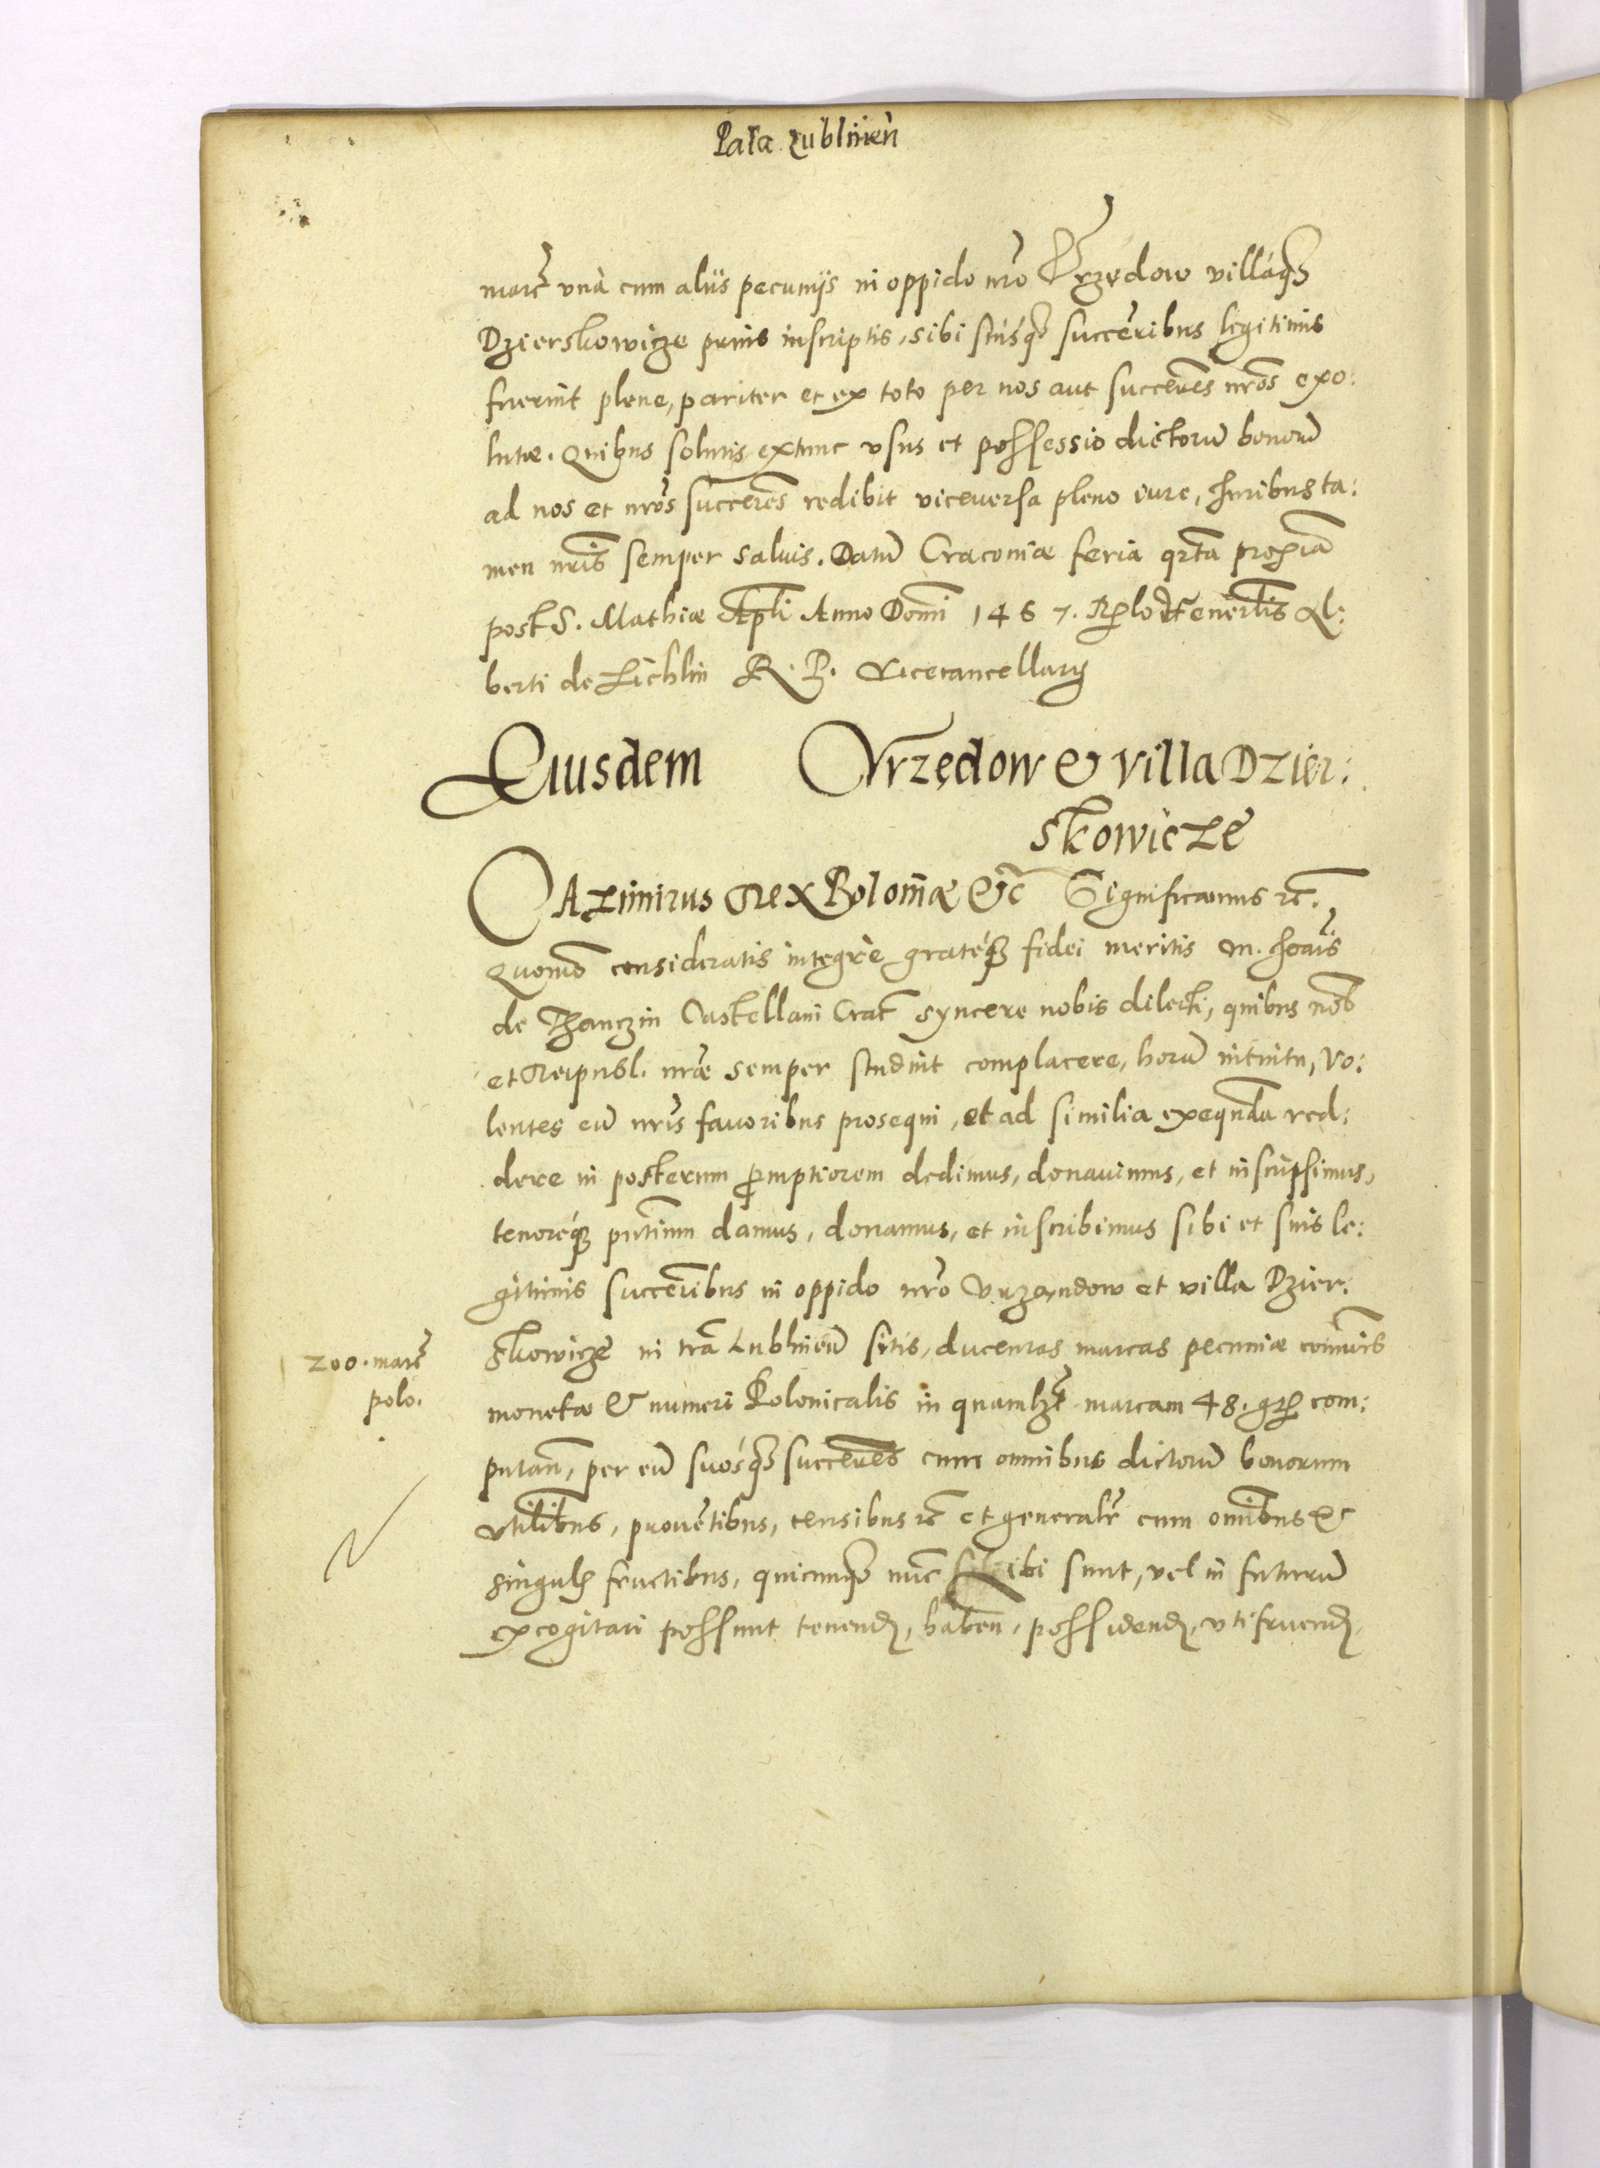 Pala. Lublinen
marc̃ vnà cum aliis pecunijs in oppido nr̃o Vrzędow villaq₃
Dzierskowicze prius inscriptis, sibi suisq₃ succeribus legitimis
fuerint plene, pariter et ex toto per nos aut succeres nr̃os exo:
lutæ. Quibus solutis extunc vsus et possessio dictorũ bonorũ
ad nos et nr̃os succeres redibit viceuersa pleno iure, Iuribus ta:
men nr̃is semper saluis. Datũ Cracouiæ feria qrta proximã
post S. Mathiæ Apli Anno Domi 1467. Relo Generlis Al:
berti de Zichlin R. P. Vicecancellarij
Eiusdem Vrzędow & villa Dzier:
skowicze
Cazimirus Rex Poloniæ &c̃ Significamus rc̃.
Quomõ consideratis integrè gratęq₃ fidei meritis M. Ioãis
de Thanczin Castellani Crac̃ syncere nobis dilecti, quibus nob
et Reipubl. nræ semper studuit complacere, horũ intuitu, vo:
lentes eũ nris fauoribus prosequi, et ad similia exequnda red:
dere in posterum promptiorem dedimus, donauimus, et inscripsimus,
tenoreq₃ pntium damus, donamus, et inscribimus sibi et suis le:
gitimis succeribus in oppido nr̃o Vrzandow et villa Dzier:
skowicze in tra Lublineñ sitis, ducentas marcas pecuniæ com̃vis
200. marc̃
polo.
monetæ & numeri Polonicalis in quamlzt marcam 48. gr com:
putañ, per eũ suosq₃ succeres cum omnibus dictorũ bonorum
vtilibus, prouetibus, censibus rc̃ et generalr̃ cum omibus &
singulis fructibus, quicunq₃ nũc ibi sunt, vel in futurũ
excogitari possunt tenend, habeñ, possidend, vtifruend,